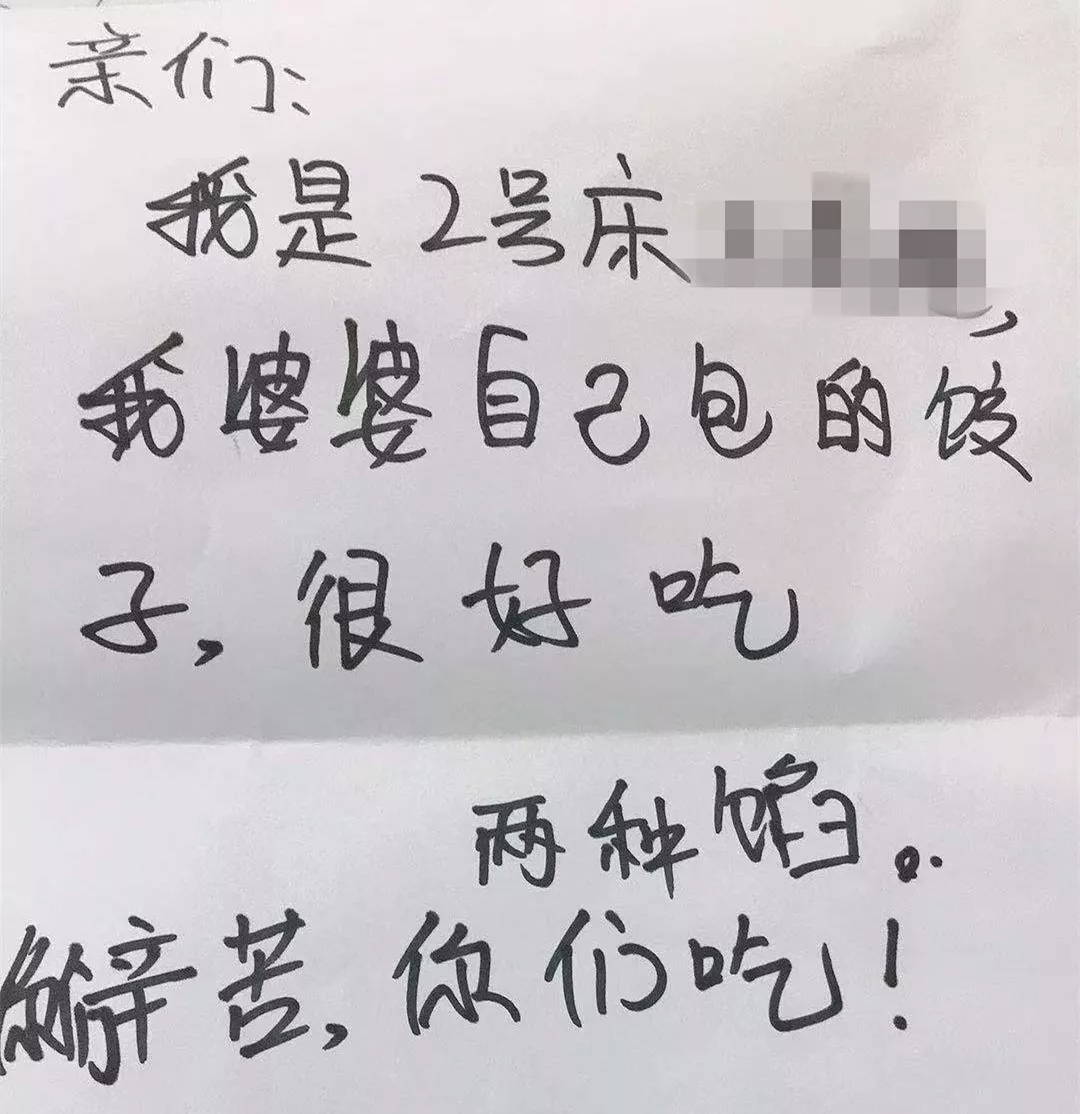 亲们:
我是2号床
我婆婆自己包的饺
子,很好吃
两种馅。
你们辛苦,你们吃!